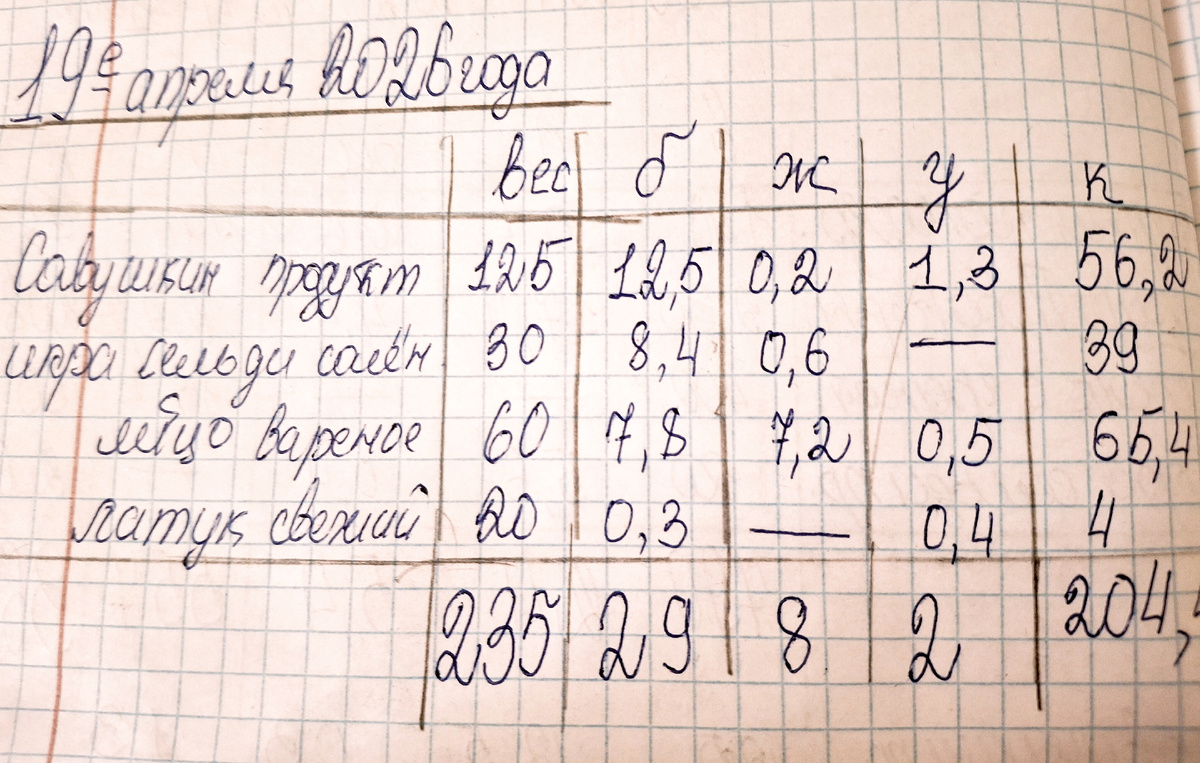 19е апреля 2026 года
вес б ж у к
Савушкин продукт 125 12,5 0,2 1,3 56,2
икра сельди солён 30 8,4 0,6 — 39
яйцо вареное 60 7,8 7,2 0,5 65,4
латук свежий 20 0,3 — 0,4 4
235 29 8 2 204,